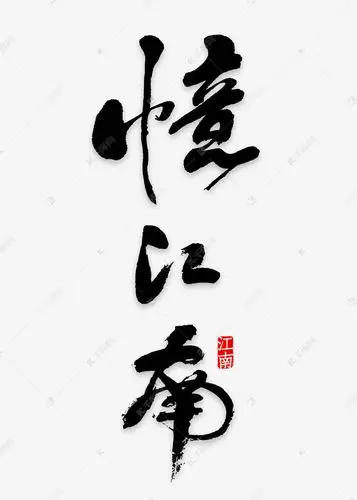 憶江南
江南